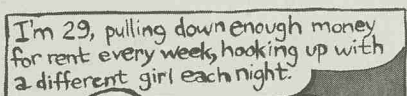 I'm 29, pulling down enough money
for rent every week, hooking up with
a different girl each night.